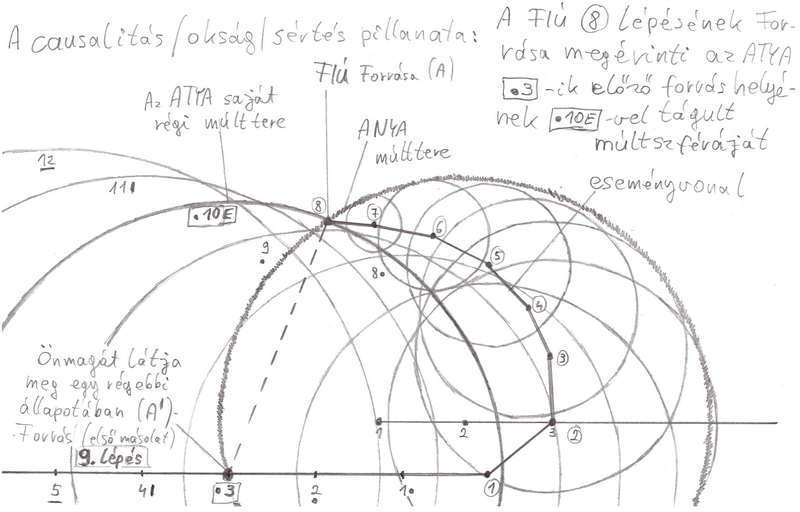 A causalitás/okság/sértés pillanata:
A FIÚ ⑧ lépésének For-
rása megérinti az ATYA
.3 -ik előző forráshelyé-
nek .10E -vel tágult
múltszféráját
FIÚ Forrása (A)
Az ATYA saját
régi múlttere
ANYA
múlttere
eseményvonal
12
11
.10E
8
⑦
⑥
⑤
④
③
9
8.
1
2
3
②
Önmagát látja
meg egy régebbi
állapotában (A')-
-Forrás (első másolat)
9. lépés
5
4
.3
2
1.
①